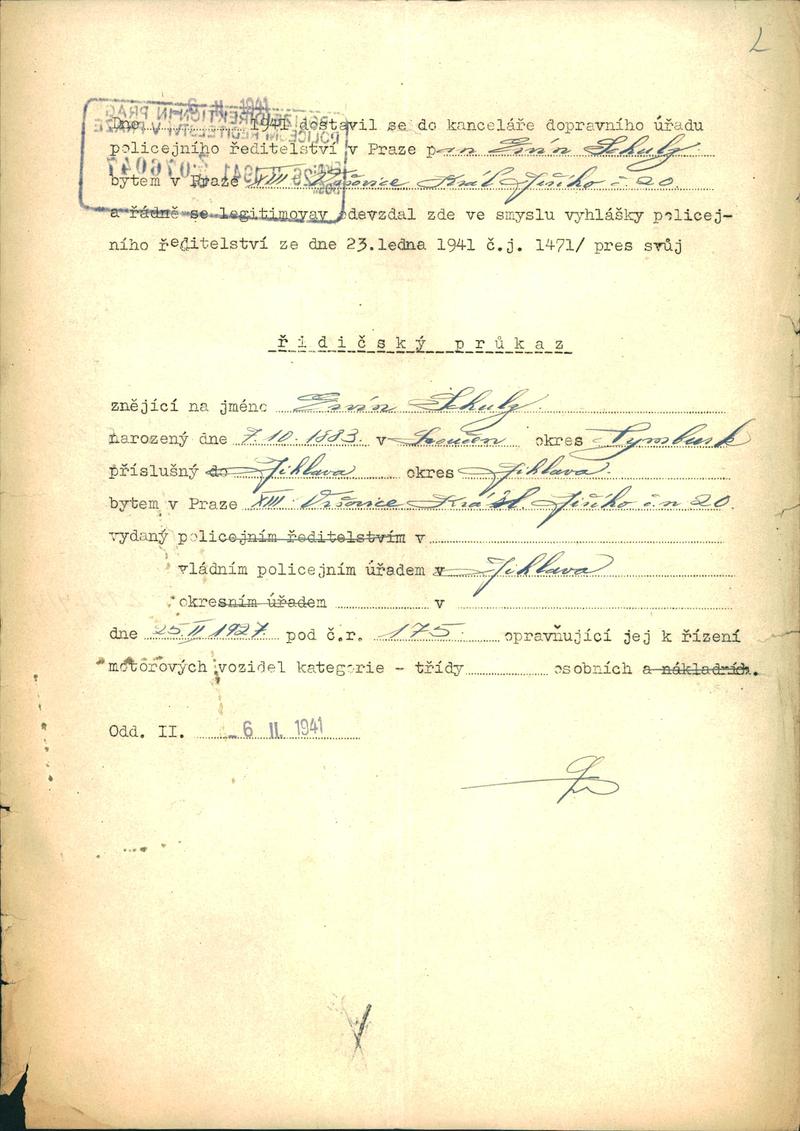 L
Dne 1941 dostavil se do kanceláře dopravního úřadu
policejního ředitelství v Praze pan Ervín Schulz
bytem v Praze XIII Vršovice Král Jiřího č 20.
a řádně se legitimovav odevzdal zde ve smyslu vyhlášky policej-
ního ředitelství ze dne 23.ledna 1941 č.j. 1471/ pres svůj
řidičský průkaz
znějící na jméno Ervín Schulz.
narozený dne 7.10.1883. v Loučen okres Nymburk
příslušný do Jihlava okres Jihlava.
bytem v Praze XIII Vršovice Král. Jiřího č.n 20.
vydaný policejním ředitelstvím v
vládním policejním úřadem v Jihlava
okresním úřadem v
dne 25 II 1927. pod č.r. 175 opravňující jej k řízení
motorových vozidel kategorie - třídy osobních a nákladních.
Odd. II. 6 II. 1941